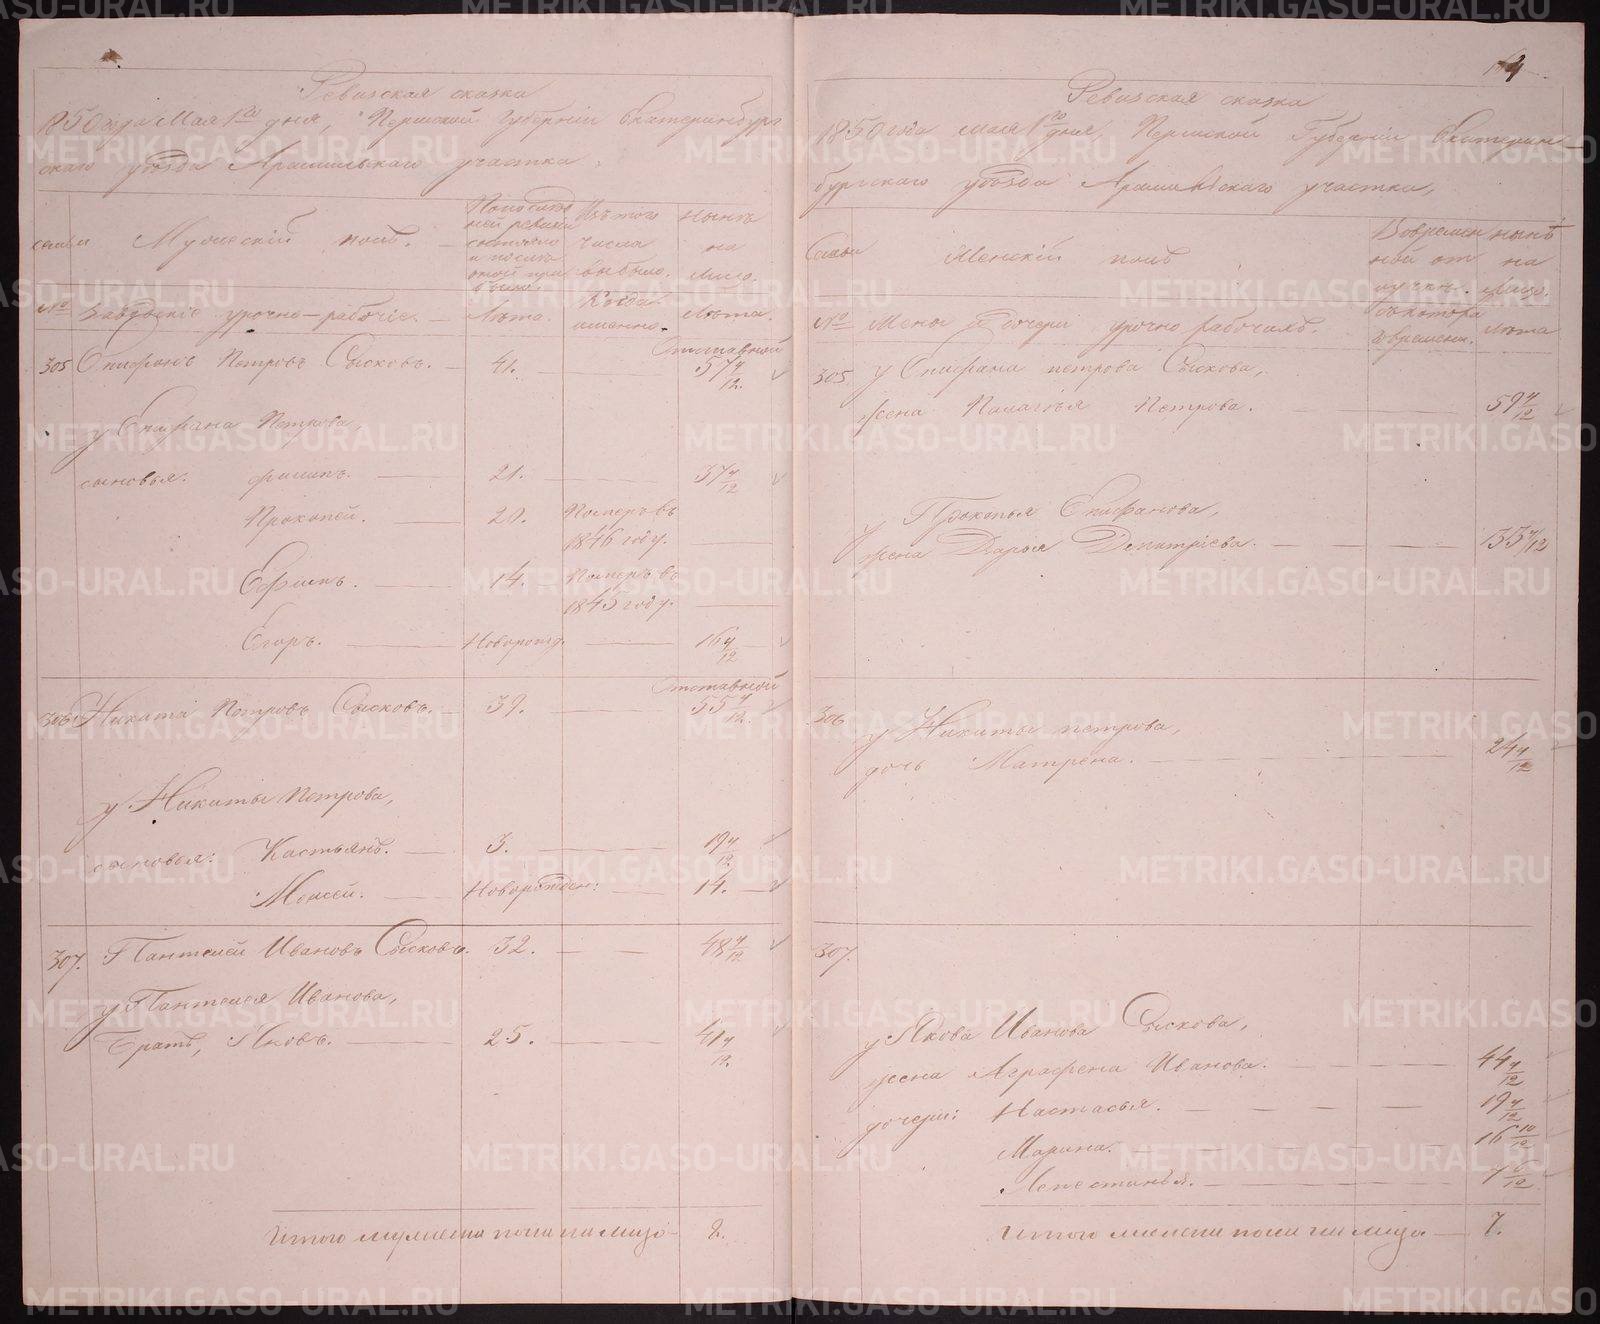 Ревизская сказка
1850 года Мая 1го дня, Пермской Губернiи Екатеринбург
скаго уѣзда Арамильскаго участка.
семьи Мужескiй полъ.
По последней ревизiи состояло и после оной прибыло.
Изъ того числа выбыло.
Нынѣ на лицо.
№ Заводскiе урочно-рабочiе.
Лѣта.
Когда именно.
Лѣта.
305 Епифанъ Петровъ Сысковъ. 41. Отставной 57 4/12
у Епифана Петрова,
сыновья: Филипъ. 21. 37 4/12
Прокопей. 20. Померъ въ
1846 году.
Ефимъ. 14. Померъ въ
1845 году.
Егоръ. Новорожд. 16 4/12
306 Никита Петровъ Сысковъ. 39. Отставной 55 4/12
у Никиты Петрова,
сыновья: Кастьянъ. 3. 19 4/12
Моисей. Новорожден: 14.
307. Пантелей Ивановъ Сысковъ. 32. 48 4/12
у Пантелея Иванова,
Братъ, Яковъ. 25. 41 4/12
Итого мужеска пола на лицо 8.
Ревизская сказка
1850 года мая 1го дня, Пермской Губернiи Екатерин
бургскаго уѣзда Арамильскаго участка,
Семьи Женскiй полъ
Во временной отлучкѣ.
нынѣ на лицо.
№ Жены и дочери урочно рабочихъ.
Съ котора времени.
Лѣта
305 у Епифана петрова Сыскова,
жена Палагѣя Петрова. 59 4/12
у Прокопья Епифанова,
жена Дарья Дмитрiева. 35 4/12
306 у Никиты петрова,
дочь Матрена. 24 4/12
307.
у Якова Иванова Сыскова,
жена Аграфена Иванова. 44 4/12
дочери: Настасья. 19 4/12
Марина. 16 10/12
7 6/12
Итого женска пола на лицо 7.
METRIKI.GASO-URAL.RU